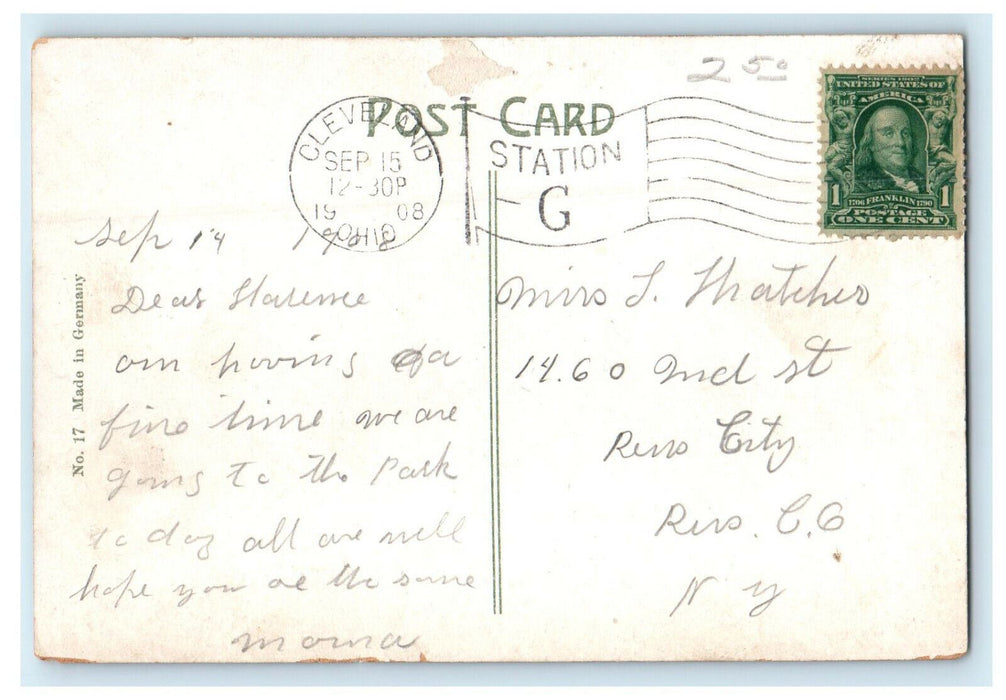 25⁰
POST CARD
CLEVELAND
SEP 15
12-30P
1908
OHIO
STATION
G
SERIES 1902
UNITED STATES OF
AMERICA
1 1706 FRANKLIN 1790 1
POSTAGE
ONE CENT
Sep 14 1908
Dear
am having a
fine time we are
going to the Park
to day all are well
hope you ae the same
mama
No. 17 Made in Germany
Miss L. Thatcher
14.60 2nd st
Rens City
Rens. C.O
N Y